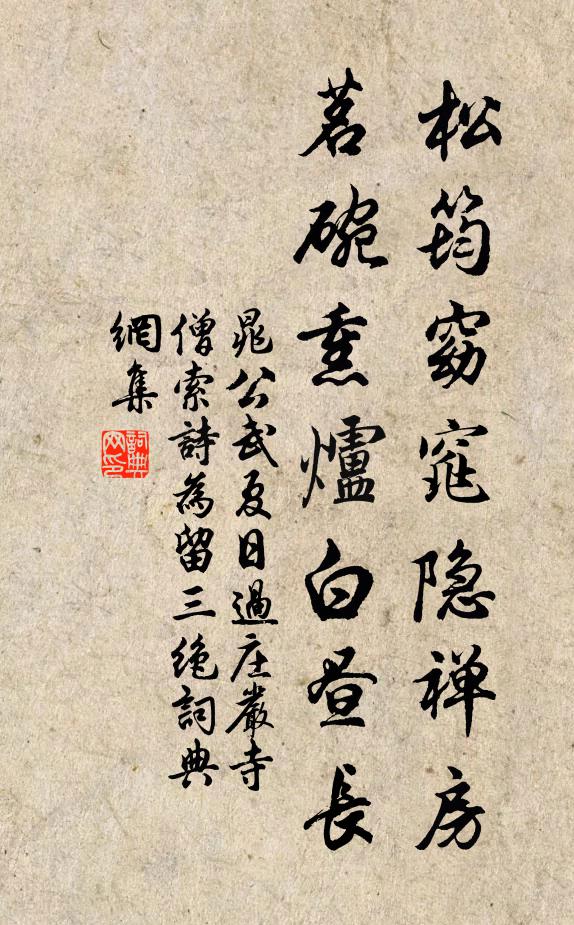 松筠窈窕隐禅房
茗碗熏爐白昼長
晁公武夏日過庄嚴寺
僧索詩為留三絶詞典
網集
詞典
网印